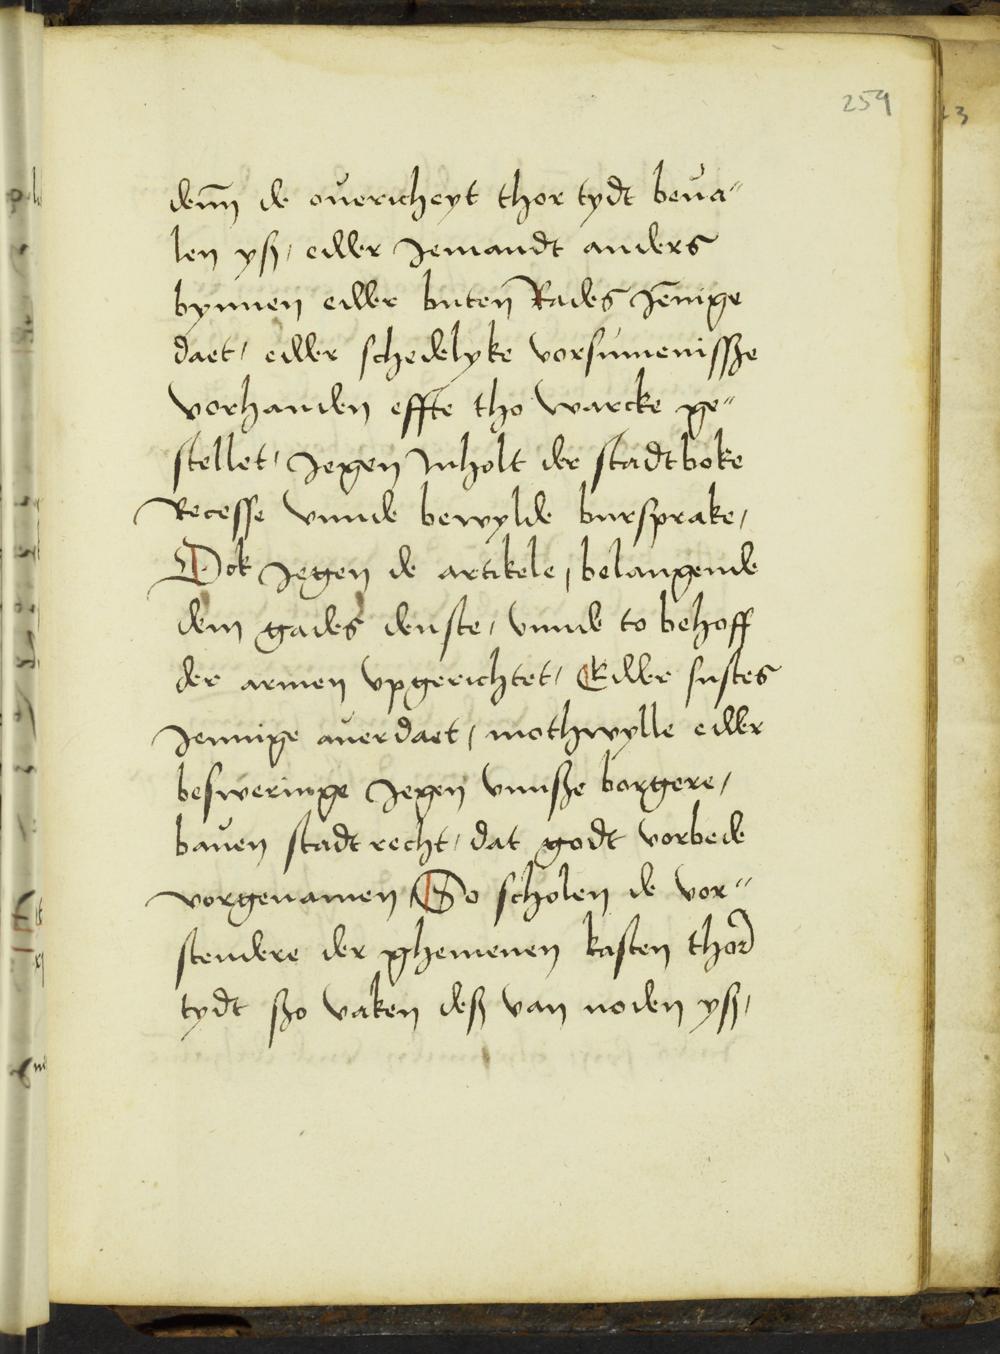 259
denn̄ de ouericheyt thor tydt beua"
len yß, edder Jemandt anders
bynnen edder buten̄ Rades Jēnige
daet, edder schedelyke vorsumenissze
vorhanden effte tho warcke ge"
stellet, Jegen Inholt der stadtboke
Recesse vnnde bewylde bursprake,
Ock Jegen de artikele, belangende
dem gades denste, vnnde to behoff
der armen vpgerichtet, Edder sustes
Jennige auerdaet, mothwylle edder
besweringe Jegen vnnsze borgere,
bauen stadtrecht, dat godt vorbede
vorgenamen, So scholen de vor"
stendere der ghemenen kasten thor
tydt szo vaken deß van noden yß,